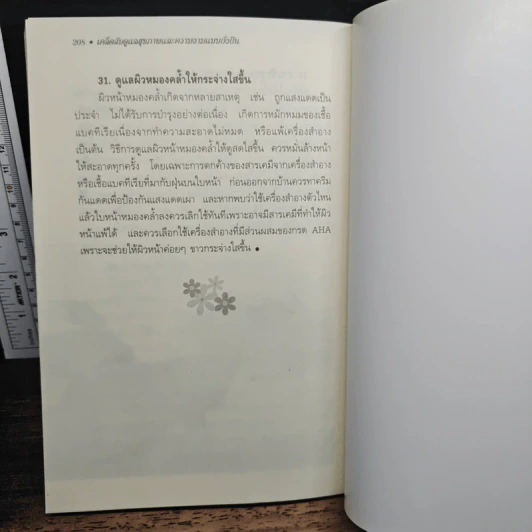 208 • เคล็ดลับดูแลสุขภาพและความงามแบบญี่ปุ่น
31. ดูแลผิวหมองคล้ำให้กระจ่างใสขึ้น
ผิวหน้าหมองคล้ำเกิดจากหลายสาเหตุ เช่น ถูกแสงแดดเป็น
ประจำ ไม่ได้รับการบำรุงอย่างต่อเนื่อง เกิดการหมักหมมของเชื้อ
แบคทีเรียเนื่องจากทำความสะอาดไม่หมด หรือแพ้เครื่องสำอาง
เป็นต้น วิธีการดูแลผิวหน้าหมองคล้ำให้ดูสดใสขึ้น ควรหมั่นล้างหน้า
ให้สะอาดทุกครั้ง โดยเฉพาะการตกค้างของสารเคมีจากเครื่องสำอาง
หรือเชื้อแบคทีเรียที่มากับฝุ่นบนใบหน้า ก่อนออกจากบ้านควรทาครีม
กันแดดเพื่อป้องกันแสงแดดเผา และหากพบว่าใช้เครื่องสำอางตัวไหน
แล้วใบหน้าหมองคล้ำลงควรเลิกใช้ทันทีเพราะอาจมีสารเคมีที่ทำให้ผิว
หน้าแพ้ได้ และควรเลือกใช้เครื่องสำอางที่มีส่วนผสมของกรด AHA
เพราะจะช่วยให้ผิวหน้าค่อยๆ ขาวกระจ่างใสขึ้น •